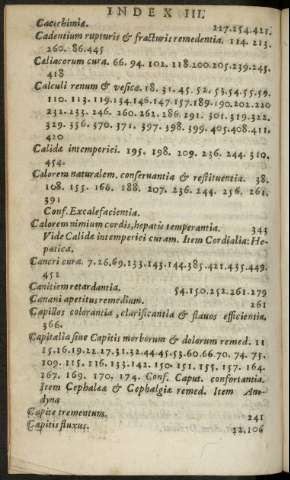 INDEX III.
Cacochimia. 227.254.421.
Cadentium rupturis & fracturis remedentia. 114. 213.
260. 86.445
Cœliacorum cura. 66. 94. 102. 118.200.205.239.245.
418
Calculi renum & vesicæ. 18. 31. 45. 52. 53.54.55.59.
110. 113. 119.134.146.147.157.189.190.202.220
232.233. 246. 260. 261. 286. 291. 301. 319.322.
329. 356. 370. 371. 397. 398. 399. 405.408.411.
420
Calidæ intemperiei. 195. 198. 209. 236. 244. 310.
454.
Calorem naturalem. conservantia & restituentia. 38.
108. 155. 166. 188. 207. 236. 244. 256. 261.
391
Conf. Excalefacientia.
Calorem nimium cordis, hepatis temperantia. 343
Vide Calidæ intemperiei curam. Item Cordialia: He-
patica.
Cancri cura. 7.26.69.133.143.144.385.421.435.449.
452
Canitiem retardantia. 54.150.252.261.279
Canani apetitus remedium. 261
Capillos colorantia, clarificantia & flavos efficientia.
366.
Capitalia sive Capitis morborum & dolorum remed. 11
15.16.19.22.27.31.32.44.45.53.60.66.70. 74. 75.
109. 115. 116. 133. 142. 150 151. 155. 157. 164.
167. 169. 170. 174. Conf. Caput. confortantia.
Item Cephalæa & Cephalgiæ remed. Item Ano-
dyna
Capite trementum. 241
Capitis fluxus. 32.106